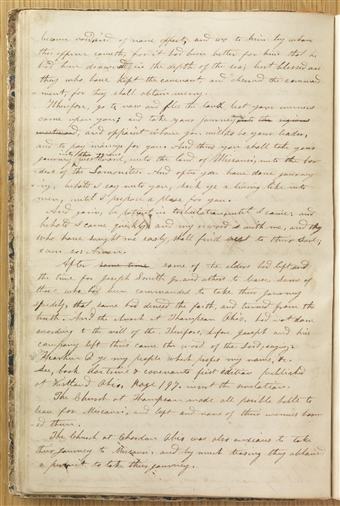 become void and of none effect, and wo to him by whom
this offence cometh, for it had been better for him that he
had been drowned in the depth of the sea; but blessed are
they who have kept the covenant, and observed the command
ment, for they shall obtain mercy.
Wherefore, go to now and flee the land, lest your enemies
come upon you; and take your journey, and
appoint whom you will to be your leader,
and to pay moneys for you. And thus you shall take your
journey into the regions westward, unto the land of Missouri, unto the bor
ders of the Lamanites. And after you have done journey
ing, behold I say unto you, seek ye a living like unto
men, until I prepare a place for you.
And again, be patient in tribulation until I come: and
behold I come quickly and my reward is with me, and they
who have sought me early, shall find rest to their souls;
even so: Amen.
After some of the elders had left and
the time for Joseph Smith jr. and others to leave, some of
those who had been commanded to take their journey
speedily, had denied the faith, and turned from the
truth. And the church at Thompson Ohio, had not done
according to the will of the Lord, therefore, before Joseph and his
company left this came the word of the Lord, saying:
Hearken O ye my people which profess my name, &c.
See, book doctrine & covenants first edition published
at Kirtland Ohio, Page 197. insert the revelation.
The Church at Thompson made all possible haste to
leave for Missouri, and left and none of their enemies harm
ed them.
The Church at Ohio was also anxious to take
their journey to Missouri, and by much teasing they obtained
a permit to take their journey.